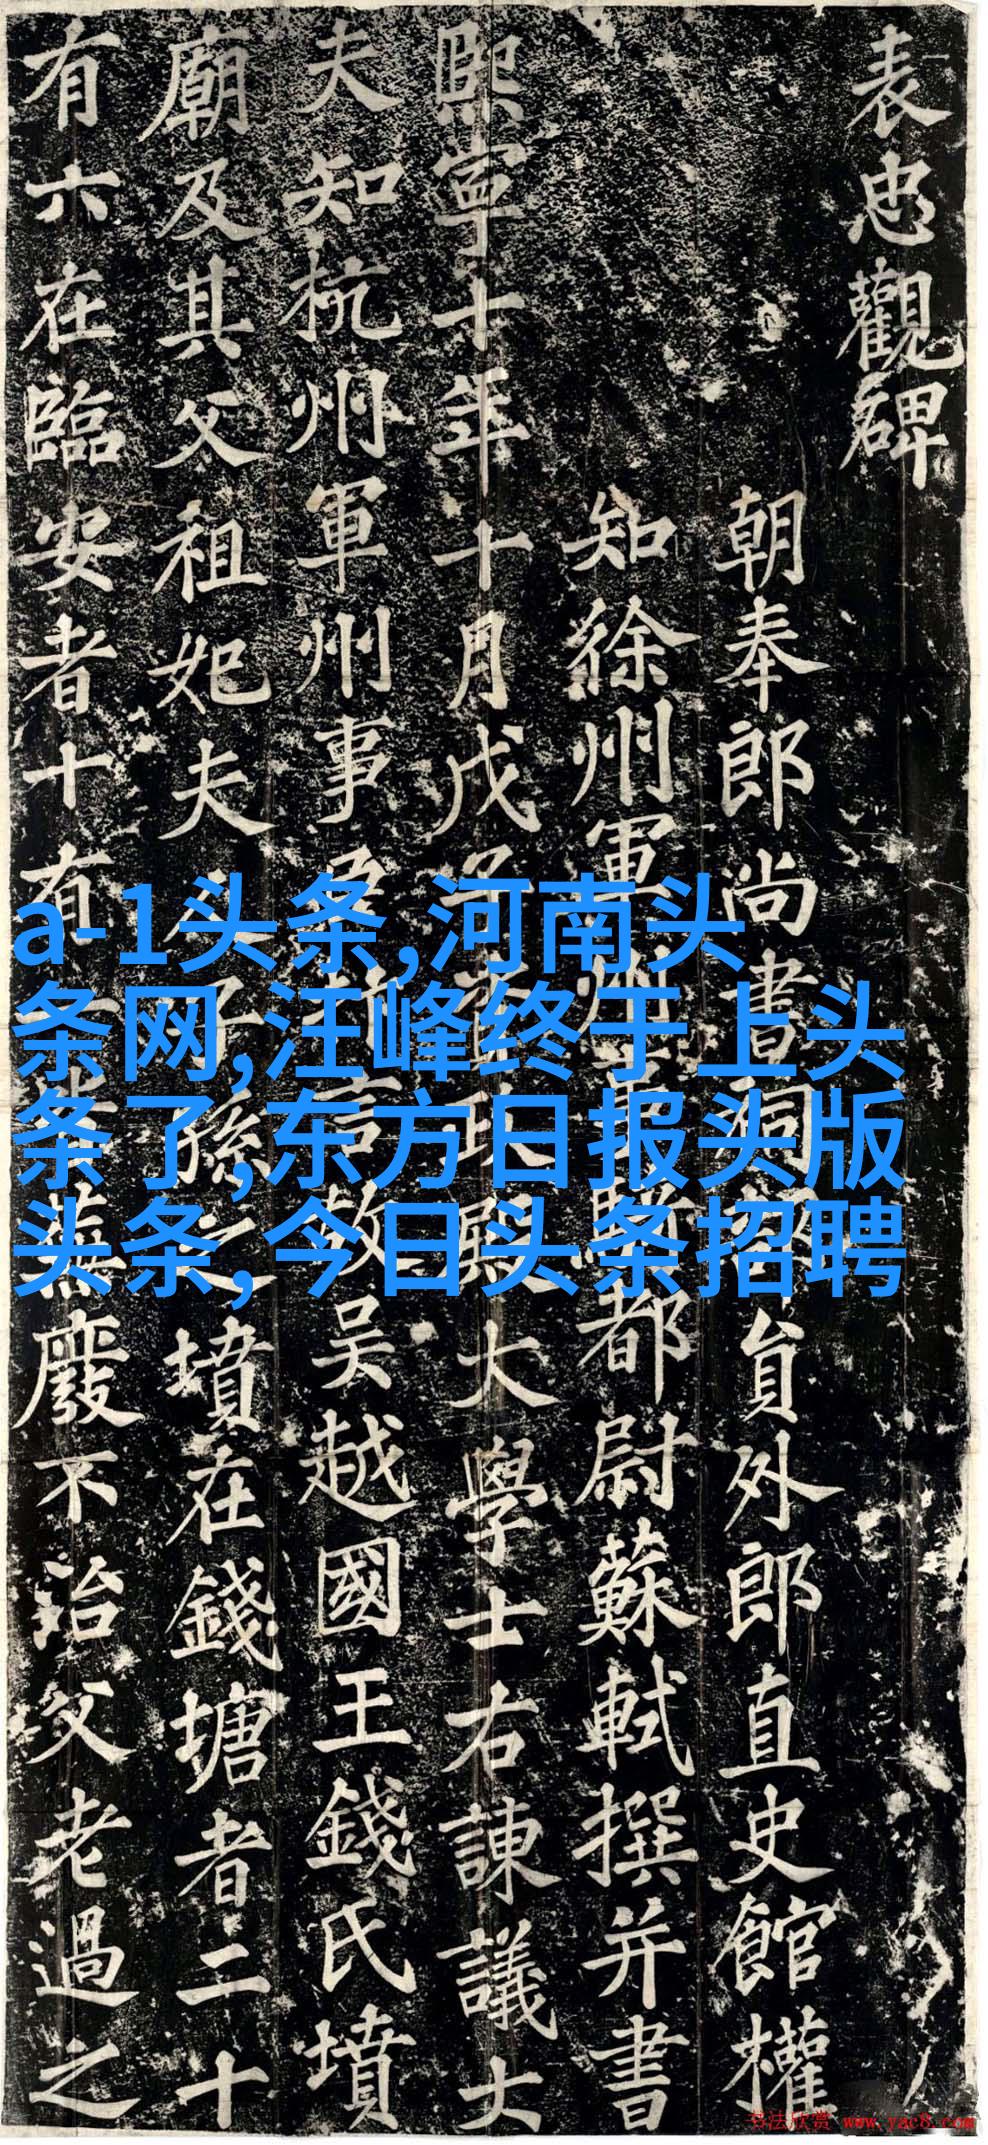 表忠觀碑
朝奉郎尚書祠部員外郎直史館權
知徐州軍州事騎都尉蘇軾撰并書
熙寧十年十月戊子資政殿大學士右諫議大
夫知杭州軍州事臣抃言故吳越國王錢氏墳
廟及其父祖妃夫人子孫之墳在錢塘者二十
有六在臨安者十有一皆蕪廢不治父老過之
a-1头条,河南头
条网,汪峰终于上头
条了,东方日报头版
头条,今日头条招聘
书法欣赏 www.yac8.com